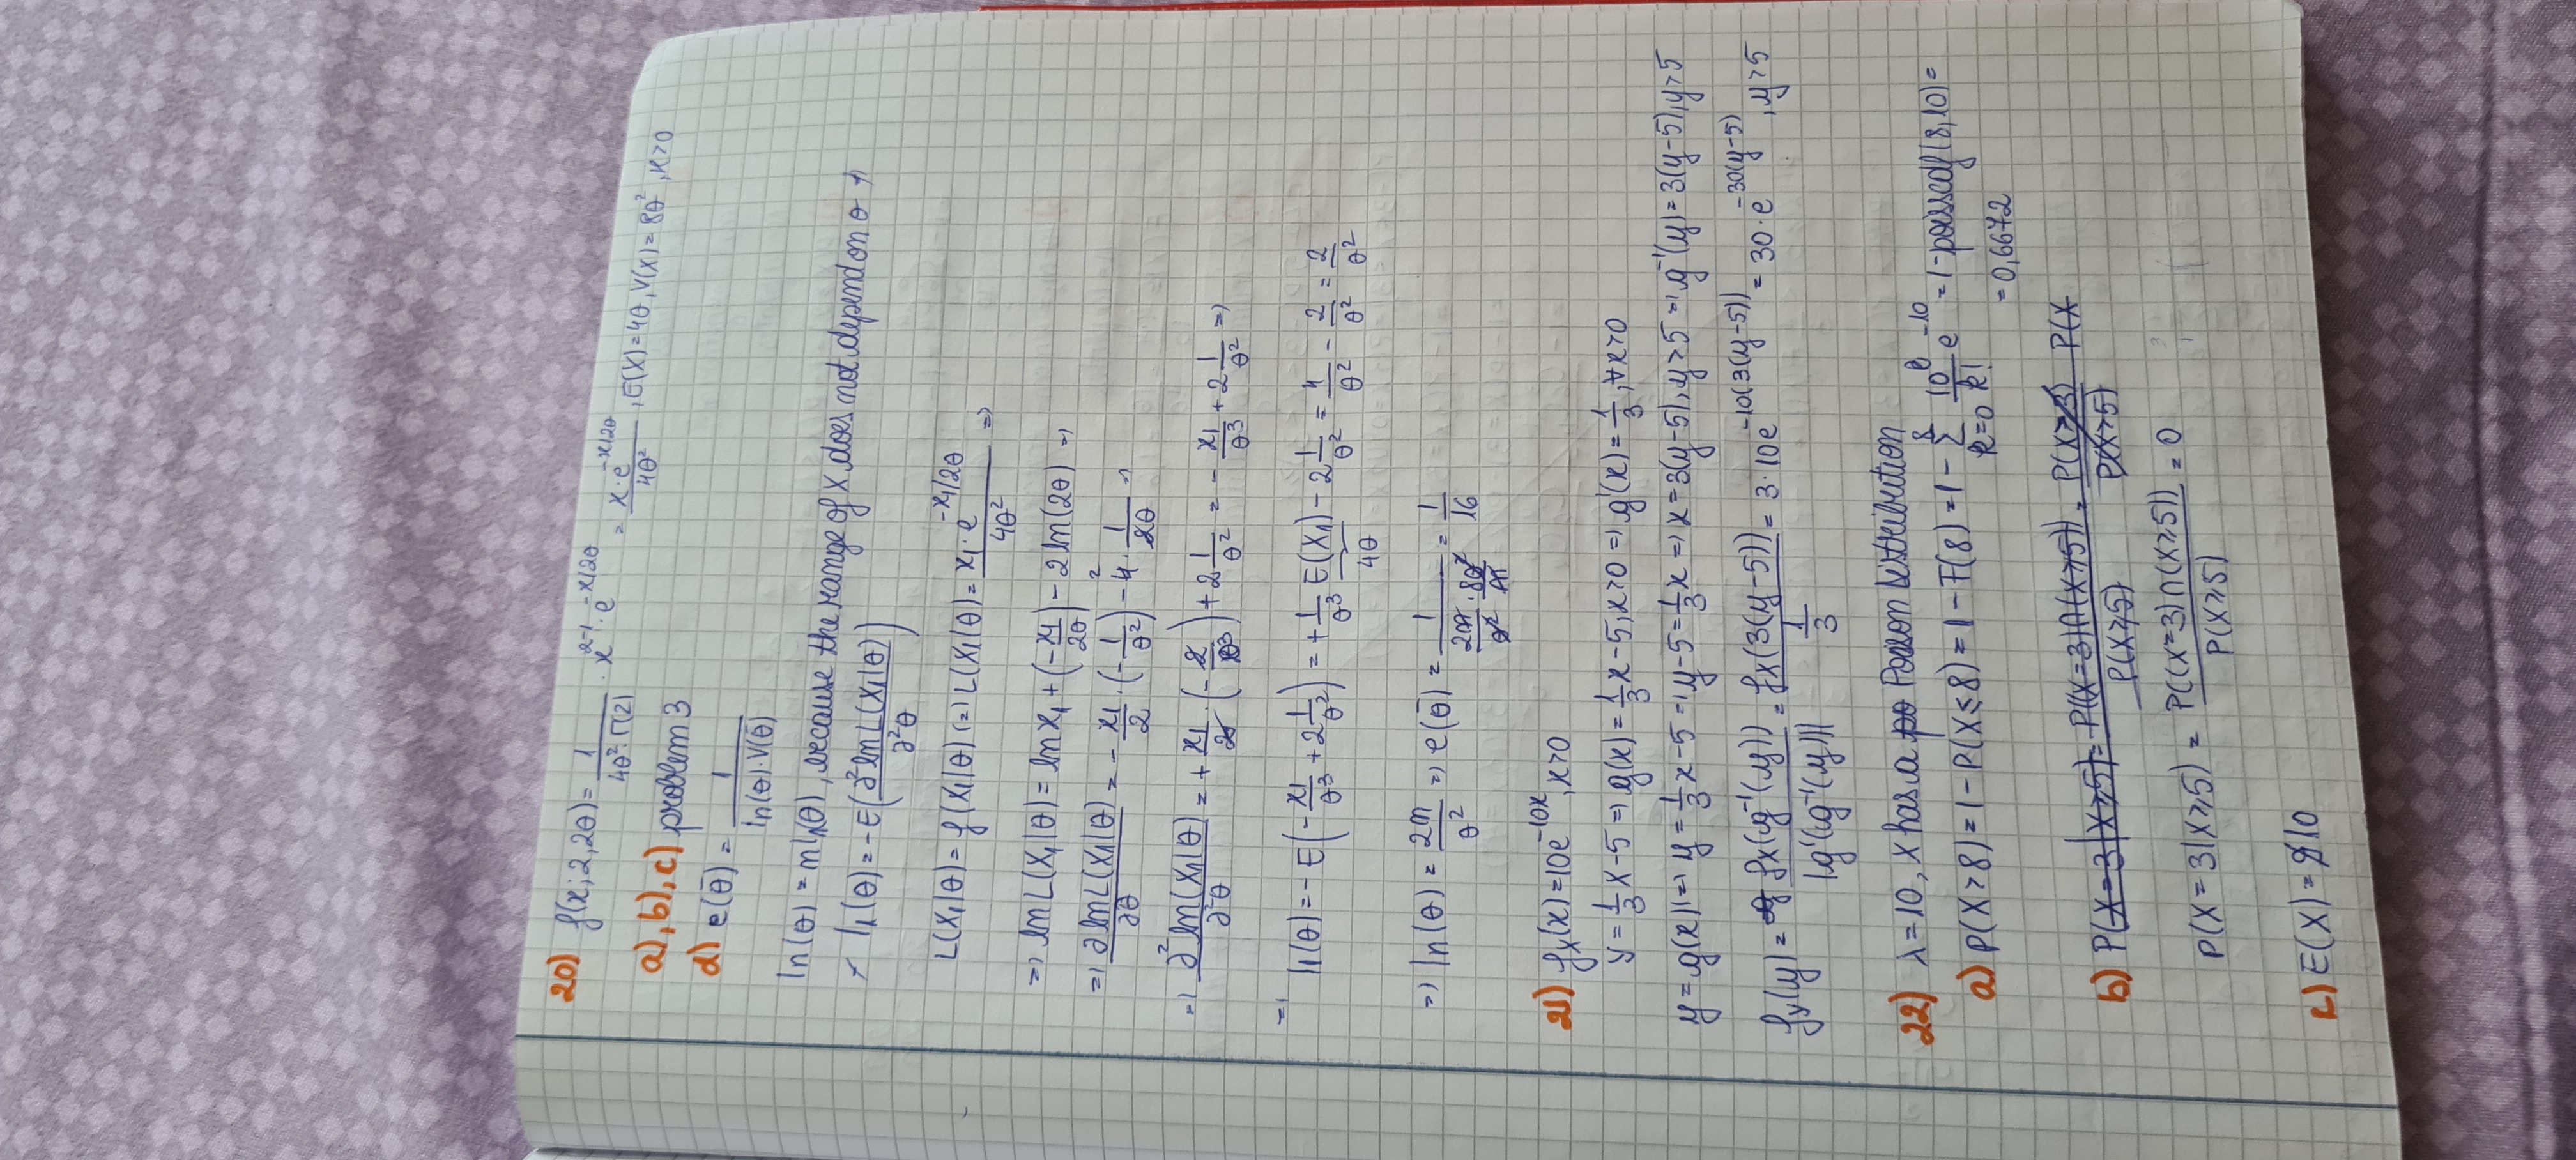 20) f(x; 2, 2θ) = 1/(4θ²·Γ(2)) · x^(2-1) · e^(-x/2θ) = (x·e^(-x/2θ))/(4θ²), E(X) = 4θ, V(X) = 8θ², x>0
a), b), c) problem 3
d) e(θ̄) = 1/(In(θ)·V(θ̄))
In(θ) = nI₁(θ), because the range of X does not depend on θ
I₁(θ) = -E(∂²lnL(X₁|θ)/∂²θ)
L(X₁|θ) = f(X₁|θ) (=) L(X₁|θ) = (x₁·e^(-x₁/2θ))/(4θ²) =>
=> lnL(X₁|θ) = lnx₁ + (-x₁/2θ) - 2ln(2θ) =>
=> ∂lnL(X₁|θ)/∂θ = -x₁/2 · (-1/θ²) - 4² · 1/2θ =>
=> ∂²ln(X₁|θ)/∂²θ = + x₁/2 · (-2/θ³) + 2 1/θ² = - x₁/θ³ + 2 1/θ² =>
=> I₁(θ) = -E(-x₁/θ³ + 2 1/θ²) = + 1/θ³ E(X₁) - 2 1/θ² = 4/θ² - 2/θ² = 2/θ²
4θ
=> In(θ) = 2n/θ² => e(θ̄) = 1/(2n/θ² · 8θ²/n) = 1/16
21) fx(x) = 10e^(-10x), x>0
Y = 1/3 X - 5 => g(x) = 1/3 x - 5, x>0 => g'(x) = 1/3, ∀x>0
y = g(x) => y = 1/3 x - 5 => y - 5 = 1/3 x => x = 3(y-5), y>5 => g⁻¹(y) = 3(y-5), y>5
fy(y) = fx(g⁻¹(y))/|g'(g⁻¹(y))| = fx(3(y-5))/(1/3) = 3·10e^(-10(3(y-5))) = 30·e^(-30(y-5)), y>5
22) λ = 10, X has a po Poisson distribution
a) P(X>8) = 1-P(X≤8) = 1-F(8) = 1- Σ_(k=0)^8 10^k/k! e^(-10) = 1-poisscdf(8,10) =
= 0,6672
b) P(X=3|X≥5) = P((X=3)∩(X≥5))/P(X≥5) = P(X=3)/P(X>5) P(X
P(X=3|X≥5) = P((X=3)∩(X≥5))/P(X≥5) = 0
c) E(X) = 10